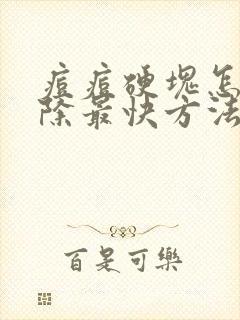 痘痘硬块怎
除最快方法
百是可樂